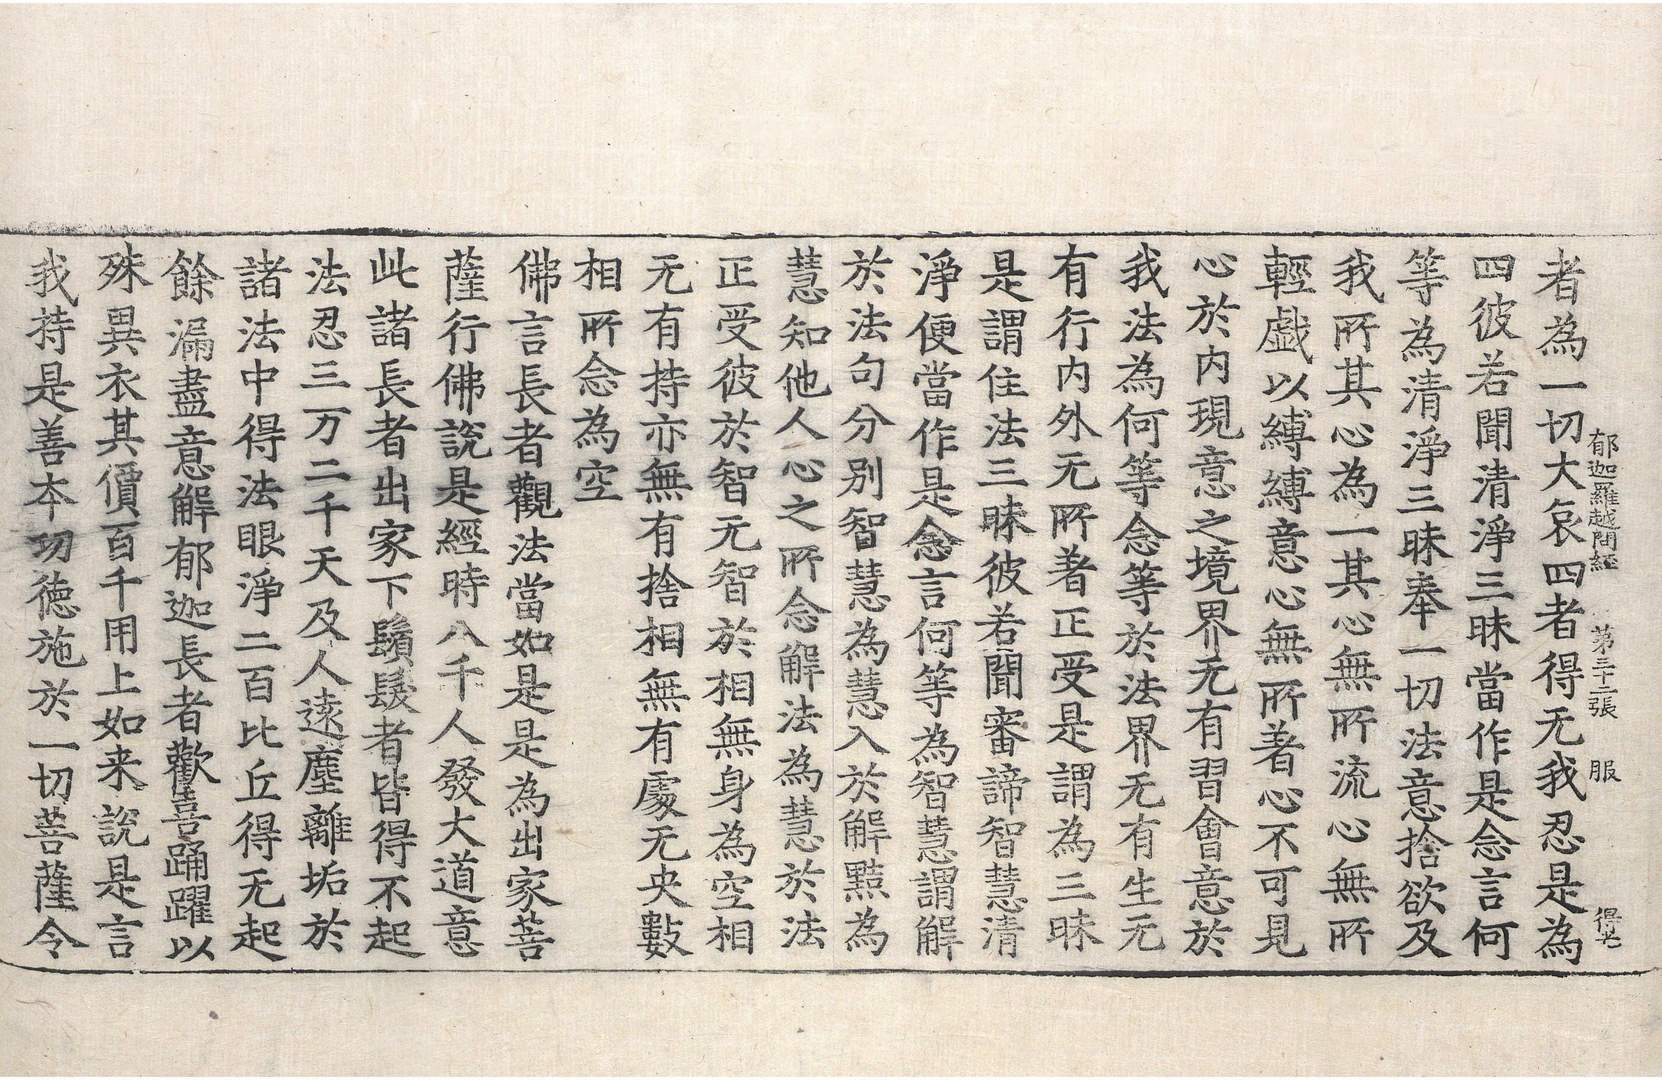 郁迦羅越問經　第三十二張　服
者為一切大哀四者得无我忍是為
四彼若聞清淨三昧當作是念言何
等為清淨三昧奉一切法意捨欲及
我所其心為一其心無所流心無所
輕戲以縛縛意心無所著心不可見
心於内現意之境界无有習會意於
我法為何等念等於法界无有生无
有行内外无所著正受是謂為三昧
是謂住法三昧彼若聞審諦智慧清
淨便當作是念言何等為智慧謂解
於法句分別智慧為慧入於解黠為
慧知他人心之所念解法為慧於法
正受彼於智无智於相無身為空相
无有持亦無有捨相無有處无央數
相所念為空
佛言長者觀法當如是是為出家菩
薩行佛說是經時八千人發大道意
此諸長者出家下鬚髮者皆得不起
法忍三万二千天及人遠塵離垢於
諸法中得法眼淨二百比丘得无起
餘漏盡意解郁迦長者歡喜踊躍以
殊異衣其價百千用上如来說是言
我持是善本功德施於一切菩薩令